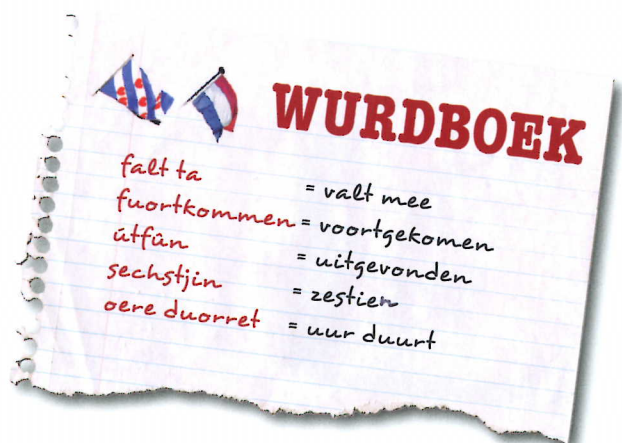 WURDBOEK
falt ta = valt mee
fuortkommen = voortgekomen
útfûn = uitgevonden
sechstjin = zestien
oere duorret = uur duurt